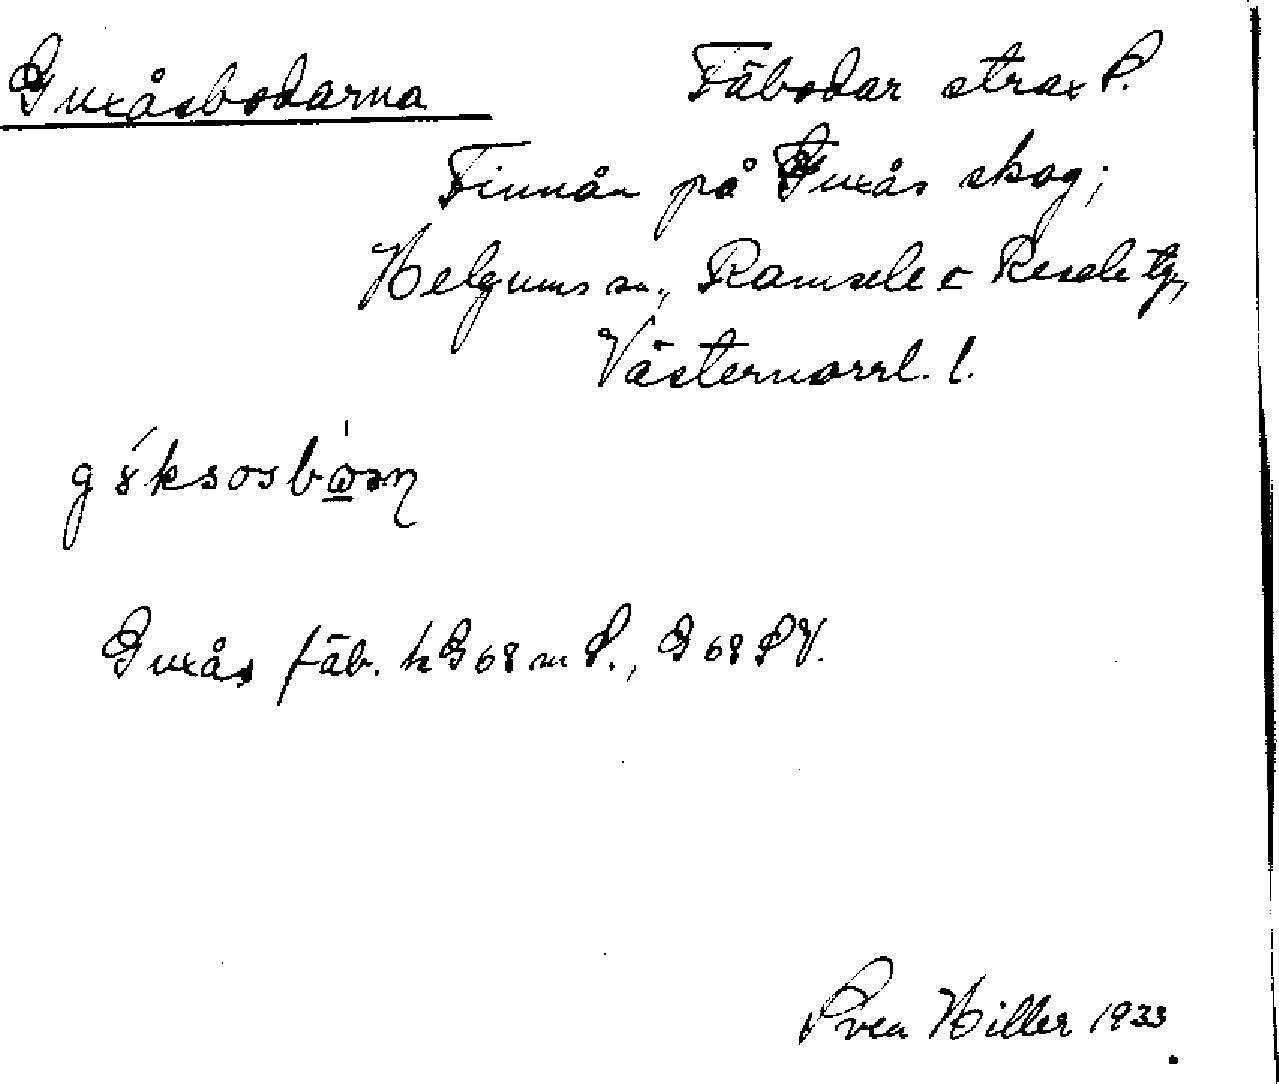 Guxåsbodarna Fäbodar strax S.
Finnån på Guxås skog;
Helgums sn., Ramsele o Resele tg,
Västernorrl. l.
Guxås fäb. k G 68 m S., G 68 SV.
Svea Hiller 1933